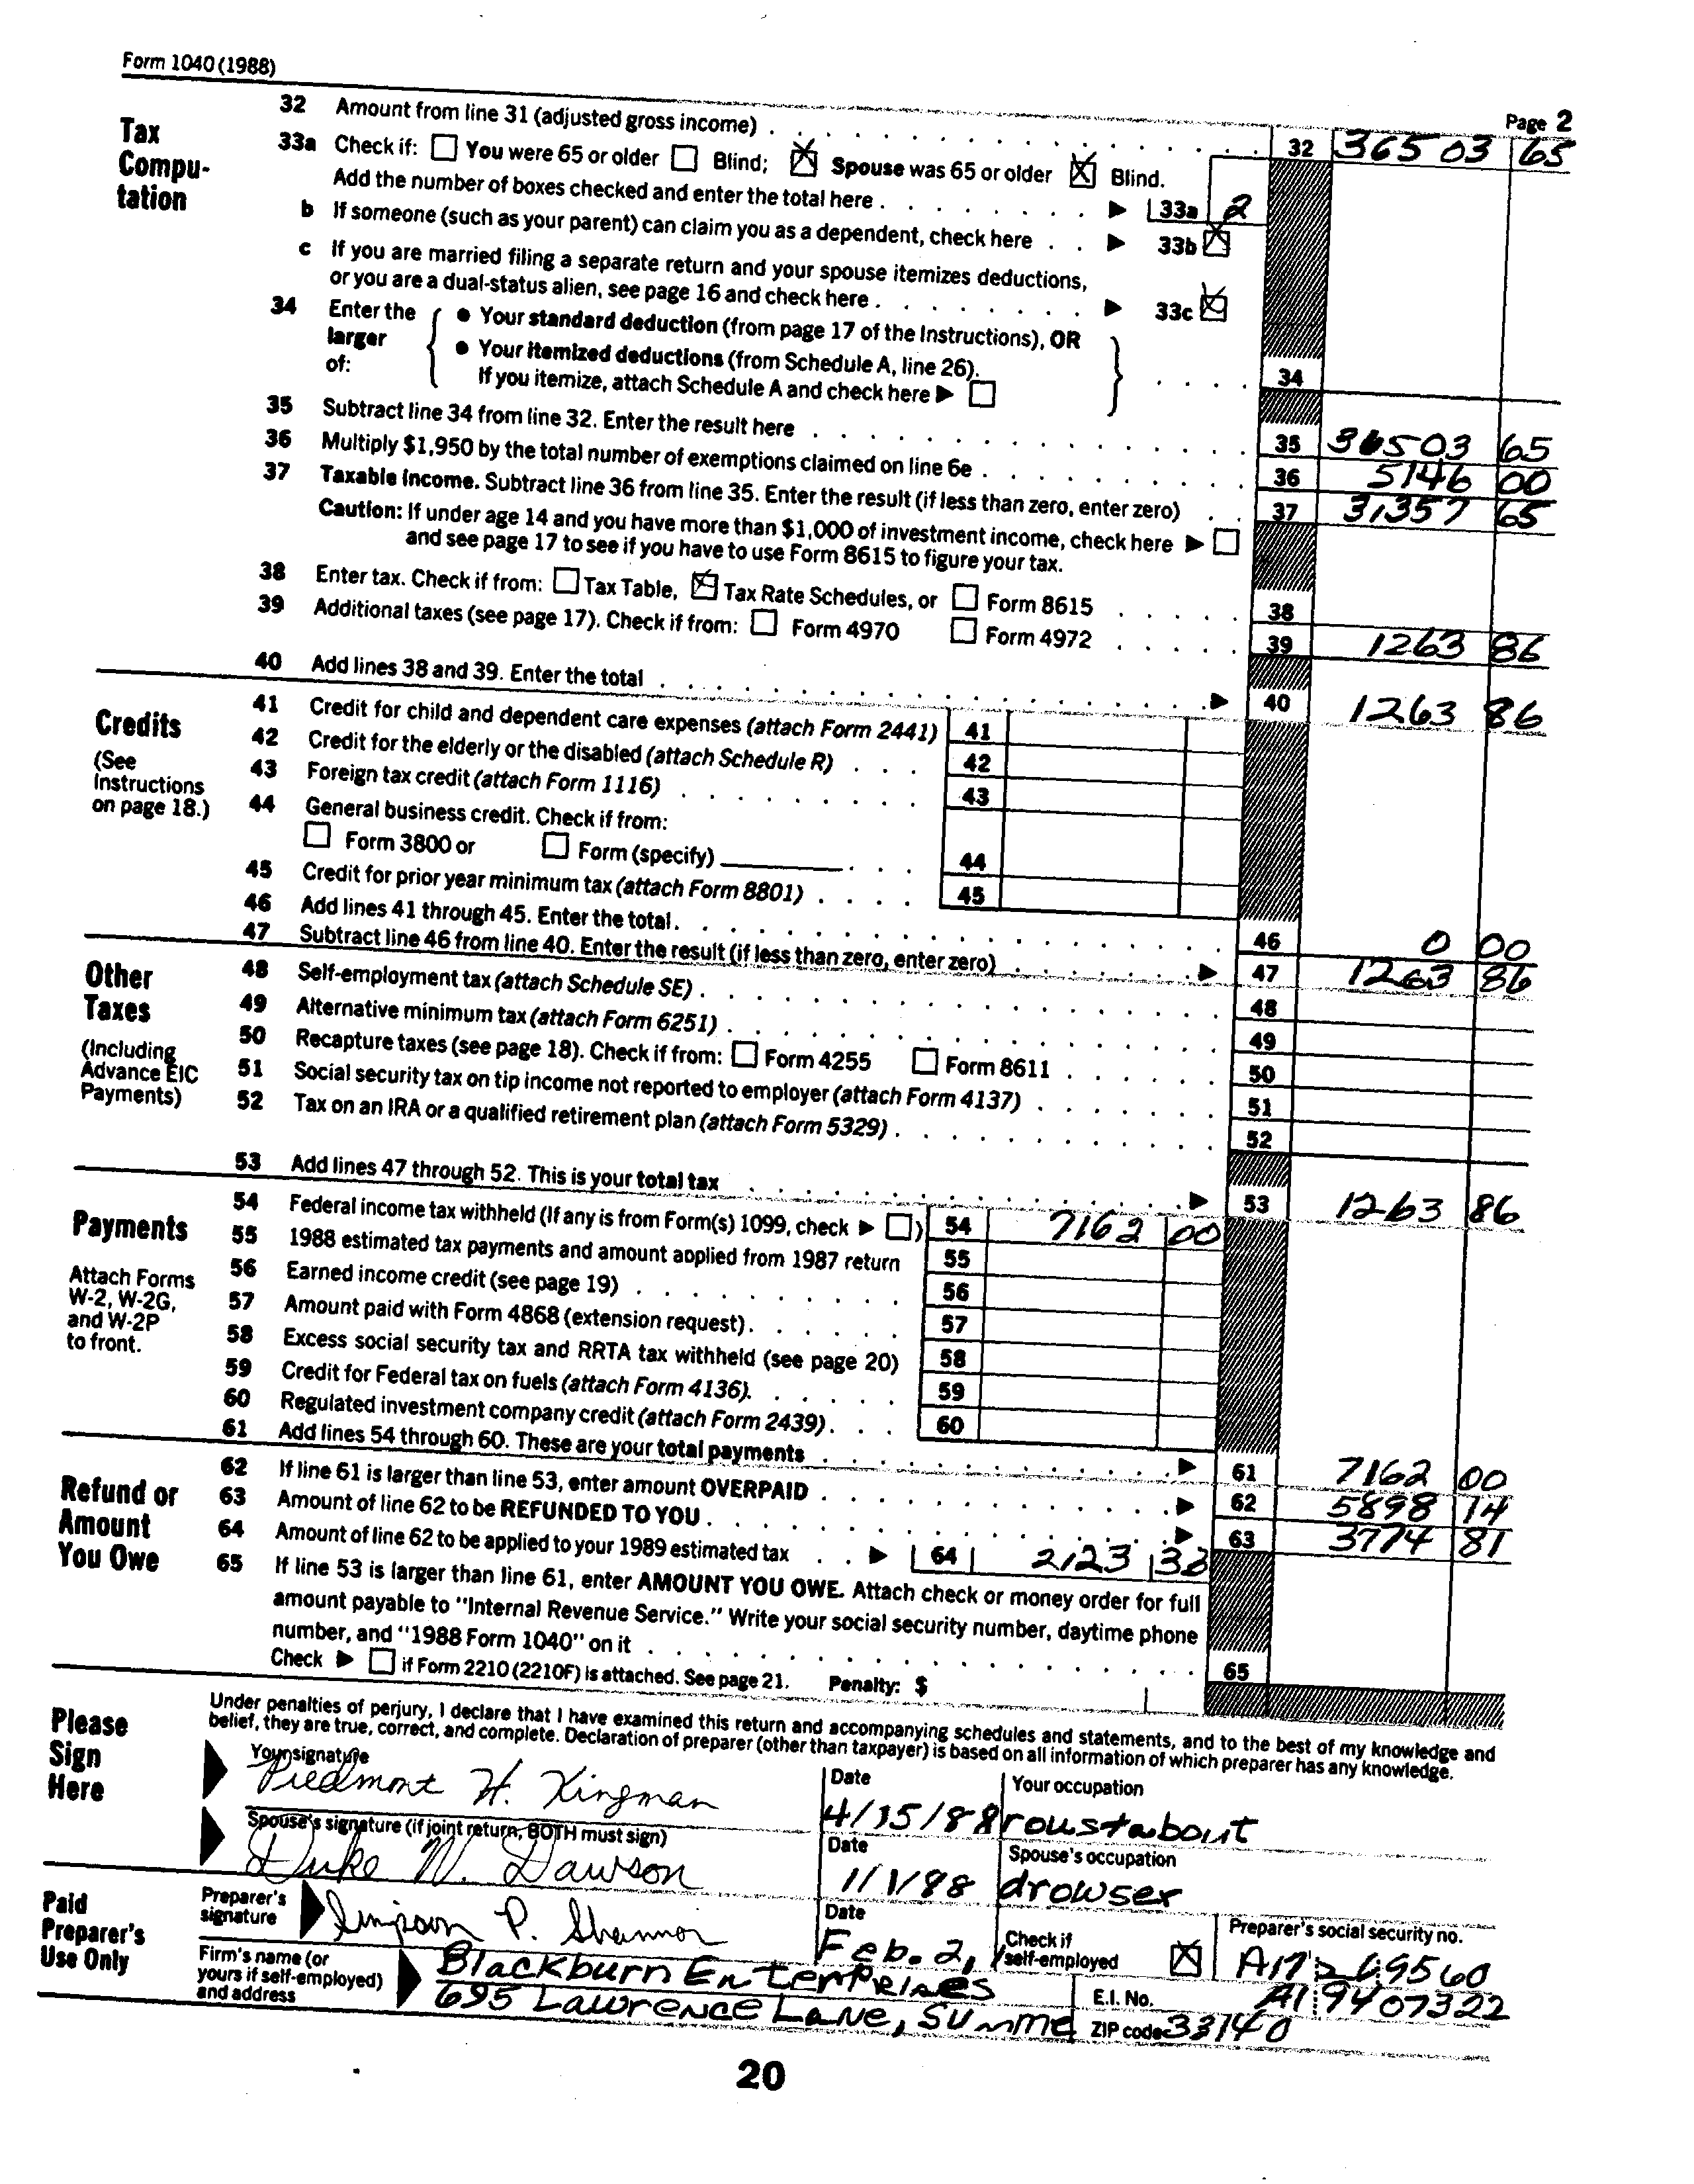 Form 1040 (1988)
Page 2
Tax Compu-tation
32 Amount from line 31 (adjusted gross income) . . . 32 36503 65
33a Check if: You were 65 or older Blind; X Spouse was 65 or older X Blind.
Add the number of boxes checked and enter the total here . . . 33a 2
b If someone (such as your parent) can claim you as a dependent, check here . . 33b X
c If you are married filing a separate return and your spouse itemizes deductions,
or you are a dual-status alien, see page 16 and check here . . . 33c X
34 Enter the larger of:
• Your standard deduction (from page 17 of the Instructions), OR
• Your itemized deductions (from Schedule A, line 26).
If you itemize, attach Schedule A and check here . . . 34
35 Subtract line 34 from line 32. Enter the result here . . . 35 36503 65
36 Multiply $1,950 by the total number of exemptions claimed on line 6e . . . 36 5146 00
37 Taxable income. Subtract line 36 from line 35. Enter the result (if less than zero, enter zero) . . 37 31357 65
Caution: If under age 14 and you have more than $1,000 of investment income, check here
and see page 17 to see if you have to use Form 8615 to figure your tax.
38 Enter tax. Check if from: Tax Table, X Tax Rate Schedules, or Form 8615 . . . 38
39 Additional taxes (see page 17). Check if from: Form 4970 Form 4972 . . . 39 1263 86
40 Add lines 38 and 39. Enter the total . . . 40 1263 86
Credits
(See Instructions on page 18.)
41 Credit for child and dependent care expenses (attach Form 2441) 41
42 Credit for the elderly or the disabled (attach Schedule R) . . . 42
43 Foreign tax credit (attach Form 1116) . . . 43
44 General business credit. Check if from:
Form 3800 or Form (specify) . . . 44
45 Credit for prior year minimum tax (attach Form 8801) . . . 45
46 Add lines 41 through 45. Enter the total . . . 46 0 00
47 Subtract line 46 from line 40. Enter the result (if less than zero, enter zero) . . . 47 1263 86
Other Taxes
(Including Advance EIC Payments)
48 Self-employment tax (attach Schedule SE) . . . 48
49 Alternative minimum tax (attach Form 6251) . . . 49
50 Recapture taxes (see page 18). Check if from: Form 4255 Form 8611 . . . 50
51 Social security tax on tip income not reported to employer (attach Form 4137) . . . 51
52 Tax on an IRA or a qualified retirement plan (attach Form 5329) . . . 52
53 Add lines 47 through 52. This is your total tax . . . 53 1263 86
Payments
Attach Forms W-2, W-2G, and W-2P to front.
54 Federal income tax withheld (If any is from Form(s) 1099, check ) 54 7162 00
55 1988 estimated tax payments and amount applied from 1987 return 55
56 Earned income credit (see page 19) . . . 56
57 Amount paid with Form 4868 (extension request) . . . 57
58 Excess social security tax and RRTA tax withheld (see page 20) 58
59 Credit for Federal tax on fuels (attach Form 4136). . . . 59
60 Regulated investment company credit (attach Form 2439) . . . 60
61 Add lines 54 through 60. These are your total payments . . . 61 7162 00
Refund or Amount You Owe
62 If line 61 is larger than line 53, enter amount OVERPAID . . . 62 5898 14
63 Amount of line 62 to be REFUNDED TO YOU . . . 63 3774 81
64 Amount of line 62 to be applied to your 1989 estimated tax . . 64 2123 33
65 If line 53 is larger than line 61, enter AMOUNT YOU OWE. Attach check or money order for full
amount payable to "Internal Revenue Service." Write your social security number, daytime phone
number, and "1988 Form 1040" on it . . . 65
Check if Form 2210 (2210F) is attached. See page 21. Penalty: $
Please Sign Here
Under penalties of perjury, I declare that I have examined this return and accompanying schedules and statements, and to the best of my knowledge and
belief, they are true, correct, and complete. Declaration of preparer (other than taxpayer) is based on all information of which preparer has any knowledge.
Your signature Date Your occupation
Piedmont H. Kingman 4/15/88 roustabout
Spouse's signature (if joint return, BOTH must sign) Date Spouse's occupation
Duke W. Dawson 1/1/88 drowser
Paid Preparer's Use Only
Preparer's signature Simpson P. Shannon Date Feb. 2, Check if self-employed X Preparer's social security no.
Firm's name (or yours if self-employed) and address
Blackburn Enterprises
E.I. No. A1 9407322
695 Lawrence Lane, Summe ZIP code 33140
20